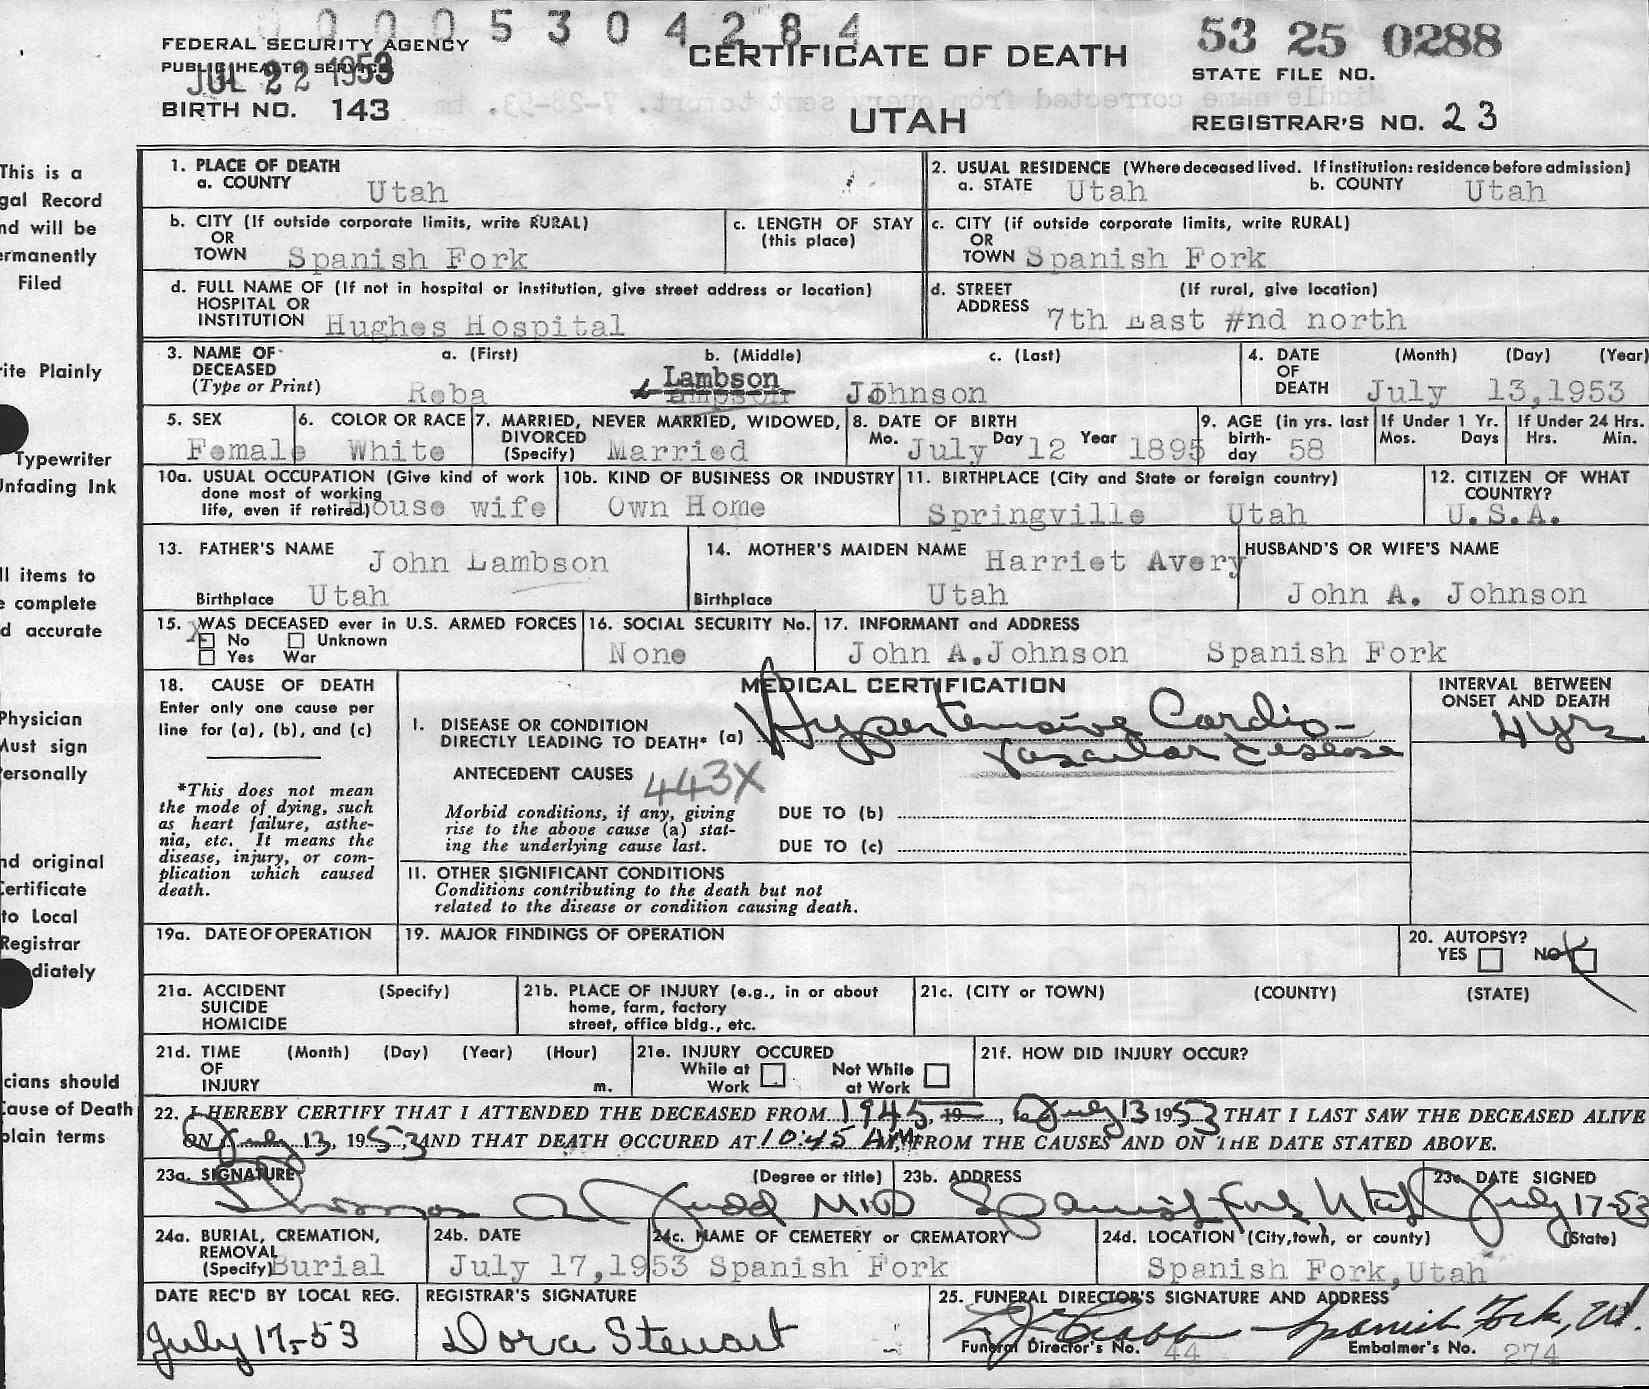 0005304284
53 25 0288
FEDERAL SECURITY AGENCY
PUBLIC HEALTH SERVICE
JUL 22 1953
CERTIFICATE OF DEATH
STATE FILE NO.
BIRTH NO. 143
UTAH
REGISTRAR'S NO. 23
Middle name corrected from query sent to regt. 7-28-53.
This is a
gal Record
nd will be
ermanently
Filed
rite Plainly
Typewriter
Unfading Ink
ll items to
e complete
d accurate
Physician
Must sign
ersonally
nd original
Certificate
to Local
Registrar
diately
cians should
Cause of Death
plain terms
1. PLACE OF DEATH
a. COUNTY Utah
2. USUAL RESIDENCE (Where deceased lived. If institution: residence before admission)
a. STATE Utah b. COUNTY Utah
b. CITY (If outside corporate limits, write RURAL)
OR
TOWN Spanish Fork
c. LENGTH OF STAY
(this place)
c. CITY (if outside corporate limits, write RURAL)
OR
TOWN Spanish Fork
d. FULL NAME OF (If not in hospital or institution, give street address or location)
HOSPITAL OR
INSTITUTION Hughes Hospital
d. STREET (If rural, give location)
ADDRESS 7th East #nd north
3. NAME OF DECEASED
(Type or Print)
a. (First) b. (Middle) c. (Last)
Reba Lambson Johnson
4. DATE OF DEATH (Month) (Day) (Year)
July 13,1953
5. SEX
Female
6. COLOR OR RACE
White
7. MARRIED, NEVER MARRIED, WIDOWED,
DIVORCED
(Specify) Married
8. DATE OF BIRTH
Mo. July Day 12 Year 1895
9. AGE (in yrs. last
birth-
day 58
If Under 1 Yr.
Mos. Days
If Under 24 Hrs.
Hrs. Min.
10a. USUAL OCCUPATION (Give kind of work
done most of working
life, even if retired) House wife
10b. KIND OF BUSINESS OR INDUSTRY
Own Home
11. BIRTHPLACE (City and State or foreign country)
Springville Utah
12. CITIZEN OF WHAT
COUNTRY?
U.S.A.
13. FATHER'S NAME John Lambson
Birthplace Utah
14. MOTHER'S MAIDEN NAME Harriet Avery
Birthplace Utah
HUSBAND'S OR WIFE'S NAME
John A. Johnson
15. WAS DECEASED ever in U.S. ARMED FORCES
No Unknown
Yes War
16. SOCIAL SECURITY No.
None
17. INFORMANT and ADDRESS
John A.Johnson Spanish Fork
18. CAUSE OF DEATH
Enter only one cause per
line for (a), (b), and (c)
*This does not mean
the mode of dying, such
as heart failure, asthe-
nia, etc. It means the
disease, injury, or com-
plication which caused
death.
MEDICAL CERTIFICATION
I. DISEASE OR CONDITION
DIRECTLY LEADING TO DEATH* (a) Hypertensive Cardio-
vascular disease
ANTECEDENT CAUSES 443X
Morbid conditions, if any, giving
rise to the above cause (a) stat-
ing the underlying cause last.
DUE TO (b)
DUE TO (c)
II. OTHER SIGNIFICANT CONDITIONS
Conditions contributing to the death but not
related to the disease or condition causing death.
INTERVAL BETWEEN
ONSET AND DEATH
4 yrs
19a. DATE OF OPERATION
19. MAJOR FINDINGS OF OPERATION
20. AUTOPSY?
YES NO
21a. ACCIDENT (Specify)
SUICIDE
HOMICIDE
21b. PLACE OF INJURY (e.g., in or about
home, farm, factory
street, office bldg., etc.
21c. (CITY or TOWN) (COUNTY) (STATE)
21d. TIME (Month) (Day) (Year) (Hour)
OF
INJURY m.
21e. INJURY OCCURED
While at Work
Not While at Work
21f. HOW DID INJURY OCCUR?
22. I HEREBY CERTIFY THAT I ATTENDED THE DECEASED FROM 1945, 19 , to July 13 1953 THAT I LAST SAW THE DECEASED ALIVE
ON July 13, 1953, AND THAT DEATH OCCURED AT 10:45 AM, FROM THE CAUSES AND ON THE DATE STATED ABOVE.
23a. SIGNATURE (Degree or title)
Thomas A Judd M.D
23b. ADDRESS
Spanish Fork Utah
23c. DATE SIGNED
July 17-53
24a. BURIAL, CREMATION,
REMOVAL
(Specify) Burial
24b. DATE
July 17,1953
24c. NAME OF CEMETERY or CREMATORY
Spanish Fork
24d. LOCATION (City, town, or county) (State)
Spanish Fork,Utah
DATE REC'D BY LOCAL REG.
July 17-53
REGISTRAR'S SIGNATURE
Dora Stewart
25. FUNERAL DIRECTOR'S SIGNATURE AND ADDRESS
Spanish Fork, Ut.
Funeral Director's No. 44 Embalmer's No. 274